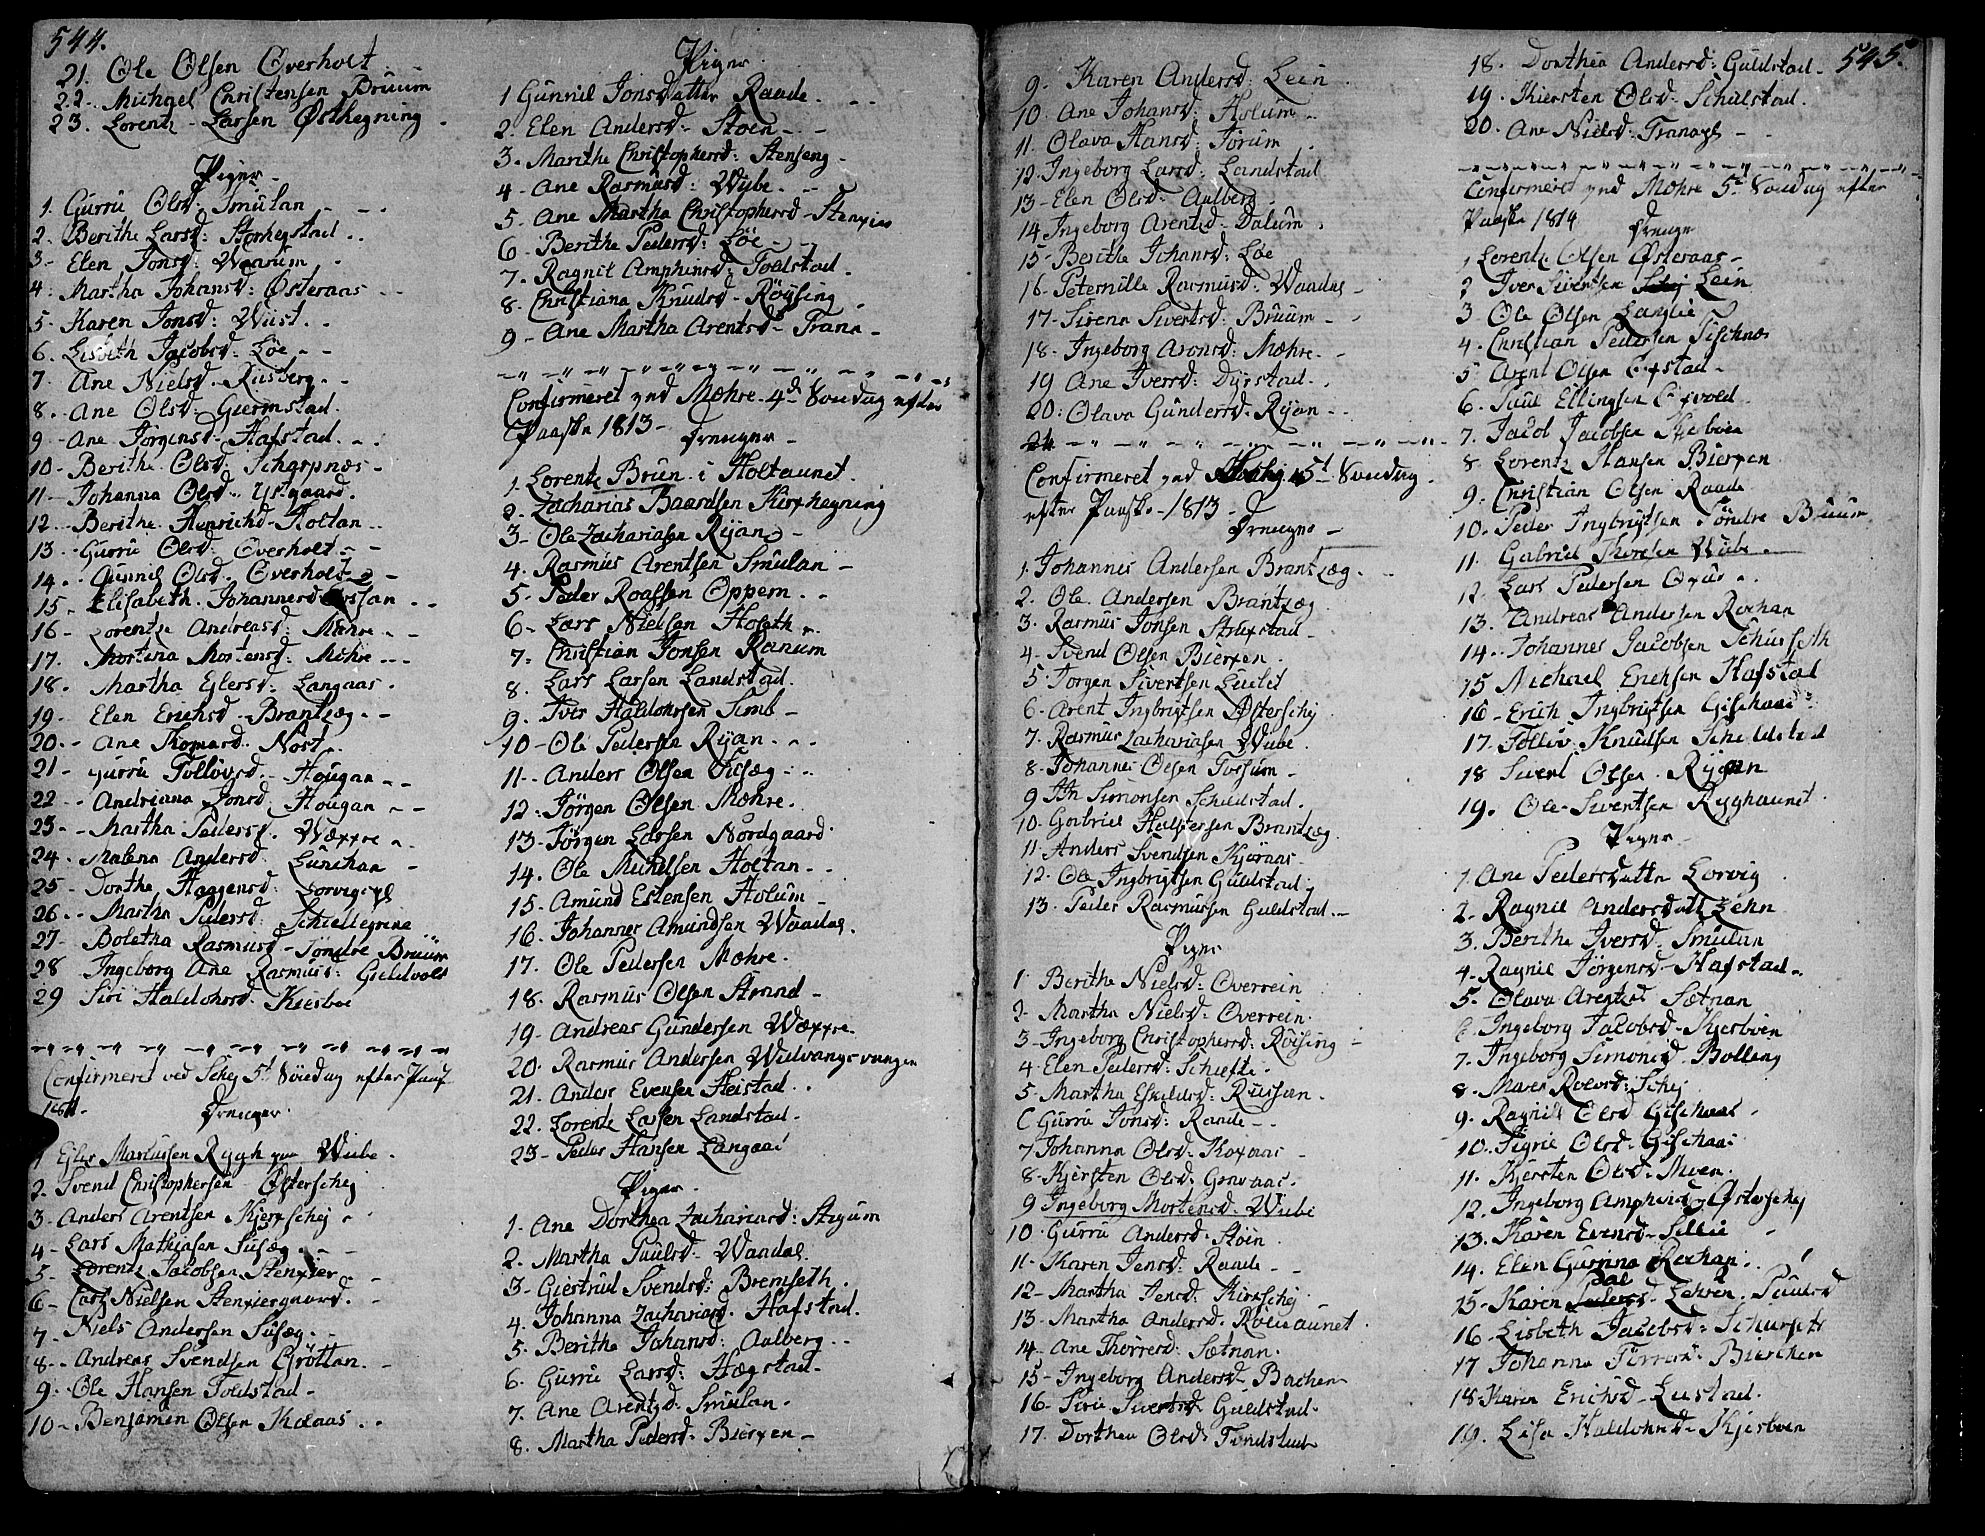 544.
21. Ole Olsen Overholt
22. Michael Christensen Bruum
23. Lorentz Larsen Østhegning
Piger
1. Gurru Olsd: Smulan
2. Berithe Larsd: Storhegstad
3. Elen Jonsd: Waarum
4. Martha Johansd: Østeraas
5. Karen Jonsd: Wiist
6. Lisbeth Jacobsd: Løe
7. Ane Nielsd: Rusberg
8. Ane Olsd: Giermstad
9. Ane Jørgensd: Hafstad
10. Berithe Olsd: Scharpnæs
11. Johanna Olsd: Ystgaard
12. Berithe Henrichsd: Holtan
13. Gurru Olsd: Overholt
14. Gunnil Olsd: Overholt
15. Elisabeth Johannesd:
16. Lorentze Andreasd: Mæhre
17. Mortina Mortensd: Mæhre
18. Martha Eglersd: Langaas
19. Elen Erichsd: Brantzæg
20. Ane Thomasd: Nost
21. Gurru Tolløvsd: Hougan
22. Andriana Jonsd: Hougan
23. Martha Pedersd: Wæxxre
24. Malena Andersd: Lunchan
25. Dorthe Haggensd:
26. Martha Pedersd: Schiellegrine
27. Boletha Rasmusd: Søndre Bruum
28 Ingeborg Ane Rasmusd: Guldvold
29 Siri Haldohrsd: Kiesboe
Confirmeret ved Schej 5te Søndag efter Paask
Drenger
1 Egler Marcussen Rygh paa Wiibe
2. Svend Christophersen Østerschej
3. Anders Arentsen Kjerxschej
4. Lars Mathiasen Susæg
5. Lorentz Jacobsen Stenxier
6. Carl Nielsen Stenxiergaard
7. Niels Andersen Susæg
8. Andreas Svendsen Grøttan
9. Ole Hansen Foldstad
10. Benjamin Olsen Kolaas
Piger
1 Gunnil Jonsdatter Raade
2. Elen Andersd: Stoen
3. Marithe Christophersd: Stenseng
4. Ane Rasmusd: Wiibe
5. Ane Martha Christophersd: Stenxier
6. Berithe Pedersd: Løe
7. Ragnil Amphinsd: Foldstad
8. Christiana Knudsd: Røysing
9. Ane Martha Arentsd: Trana
Confirmeret ved Mæhre 4de Søndag efter
Paaske 1813
Drenger
1. Lorentz Brun i Holtaunet
2. Zacharias Baardsen Kirxhegning
3. Ole Zachariasen Ryan
4. Rasmus Arentsen Smulan
5. Peder Roassen Oppem
6. Lars Nielsen Hoseth
7. Christian Jonsen Ranum
8. Lars Larsen Landstad
9. Iver Haldohrsen Semb
10. Ole Pedersen Ryan
11. Anders Olsen Susæg
12. Jørgen Olsen Mæhre
13. Jørgen Larsen Nordgaard
14. Ole Michelsen Holtan
15. Amund Estensen Holum
16. Johannes Amundsen Waadal
17. Ole Pedersen Mæhre
18. Rasmus Olsen Strand
19. Andreas Gundersen Wæxxre
20. Rasmus Andersen Wulvangsvangen
21. Anders Evensen Heistad
22. Lorentz Larsen Landstad
23. Peder Hansen Langaas
Piger
1. Ane Dorthea Zachariasd: Stuum
2. Martha Paulsd: Waadal
3. Giertrud Svendsd: Bremseth
4. Johanna Zachariasd: Hafstad
5. Berithe Johansd: Aalberg
6. Gurru Larsd: Hægstad
7. Ane Arentsd: Smulan
8. Martha Pedersd: Bierxen
9. Karen Andersd: Lein
10. Ane Johansd: Holum
11. Olava Hansd: Forum
12. Ingeborg Larsd: Landstad
13. Elen Olsd: Aalberg
14. Ingeborg Arentsd: Dalum
15. Berithe Johansd: Løe
16. Peternille Rasmusd: Waadal
17. Sirena Sivertsd: Bruum
18. Ingeborg Aronsd: Mæhre
19 Ane Iversd: Dyrstad
20: Olava Gundersd: Ryan
Confirmeret ved 5te Søndag
efter Paaske 1813
Drenger
1. Johannes Andersen Brantzæg
2. Ole Andersen Brantzæg
3. Rasmus Jonsen Struxstad
4. Svend Olsen Bierxen
5. Jørgen Sivertsen
6. Arent Ingbrigtsen Østerschej
7. Rasmus Zachariasen Wiibe
8. Johannes Olsen Fossum
9 Simonsen Scheldstad
10. Gabriel Halstensen Brantzæg
11. Anders Svendsen Kjøraas
12. Ole Ingbrigtsen Guldstad
13. Peder Rasmussen Guldstad
Piger
1 Berithe Nielsd: Overrein
2. Martha Nielsd: Overrein
3. Ingeborg Christophersd: Røising
4. Elen Pedersd: Schiefte
5. Martha Eskildsd: Russan
6 Gurru Jonsd: Raade
7 Johanna Olsd: Koxaas
8. Kjersten Olsd: Gravaas
9 Ingeborg Mortensd: Wiibe
10 Gurru Andersd: Stoen
11. Karen Jensd: Raade
12. Martha Jensd: Kirxschej
13. Martha Andersd: Roliaunet
14. Ane Thorresd: Sætnan
15. Ingeborg Andersd: Bachen
16. Siri Sivertsd: Guldstad
17. Dorthea Olsd: Fondstad
545.
18. Dorthea Andersd: Guldstad
19. Kiersten Olsd: Schelstad
20. Ane Nielsd:
Confirmeret ved Mæhre 5te Søndag efter
Paaske 1814
Drenger
1 Lorentz Olsen Østeraas
2 Iver Sivertsen Lein
3 Ole Olsen Langlie
4. Christian Pedersen Fischnæs
5 Arent Olsen Exstad
6. Paul Ellingsen Exvold
7. Jacob Jacobsen Kjesboen
8. Lorentz Hansen Bierxen
9. Christian Olsen Raade
10. Peder Ingbrigtsen Søndre Bruum
11. Gabriel Thoresen Wiibe
12. Lars Pedersen
13. Andreas Andersen Roxhan
14. Johannes Jacobsen Schierseth
15 Michael Erichsen Hafstad
16. Erich Ingbrigtsen Gilshaas
17. Følløv Knudsen Scheldstad
18 Sivert Olsen Ryan
19. Ole Sivertsen Ryghaunet
Piger
1. Ane Pedersdatter Lorvig
2. Ragnil Andersdatt Lehn
3. Berithe Iversd: Smulan
4. Ragnil Jørgensd: Hafstad
5. Olava Arentsd: Sætnan
6. Ingeborg Jacobsd: Kjesboen
7. Ingeborg Simonsd: Bolling
8. Maren Roelsd: Schej
9. Ragnil Olsd: Gilshaas
10. Sigril Olsd: Gilshaas
11. Kjersten Olsd: Moen
12. Ingeborg Amphinsd: Østerschej
13. Karen Evensd: Lillie
14. Elen Gurina Roxhan
15. Karen Lehren. Paulsd
16. Lisbeth Jacobsd: Schierseth
17 Johanna Torresd: Bierchen
18. Karen Erichsd: Lustad
19. Lisa Haldohrsd: Kjesboen